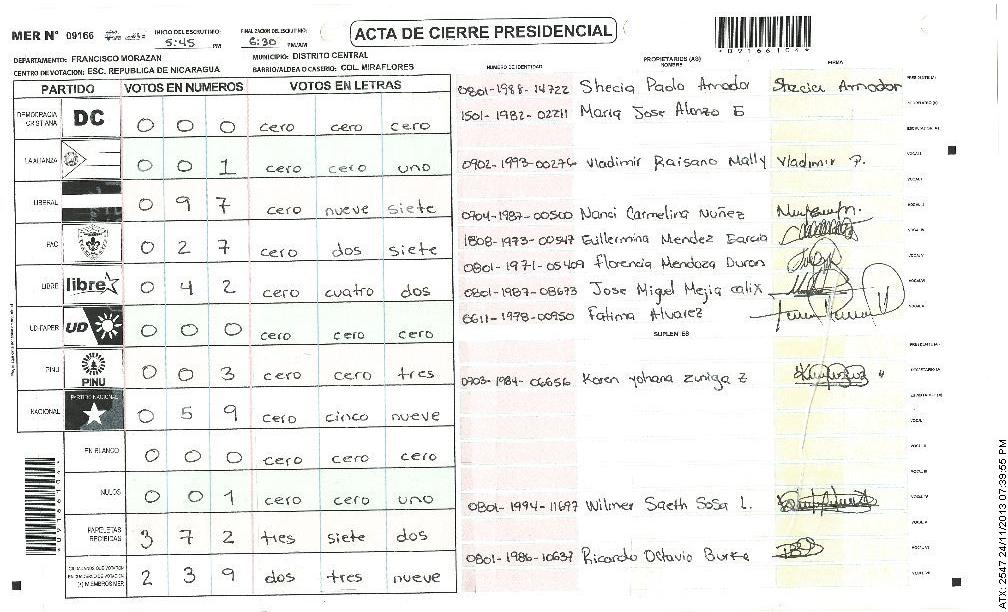 MER N° 09166 INICIO DEL ESCRUTINIO: 5:45 PM FINALIZACION DEL ESCRUTINIO: 6:30 PM/AM ACTA DE CIERRE PRESIDENCIAL
DEPARTAMENTO: FRANCISCO MORAZAN MUNICIPIO: DISTRITO CENTRAL
CENTRO DE VOTACION: ESC. REPUBLICA DE NICARAGUA BARRIO/ALDEA O CASERIO: COL. MIRAFLORES
PARTIDO VOTOS EN NUMEROS VOTOS EN LETRAS
DEMOCRACIA CRISTIANA DC 0 0 0 cero cero cero
LA ALIANZA 0 0 1 cero cero uno
LIBERAL 0 9 7 cero nueve siete
PAC 0 2 7 cero dos siete
LIBRE libre 0 4 2 cero cuatro dos
UD-FAPER UD 0 0 0 cero cero cero
PINU PINU 0 0 3 cero cero tres
NACIONAL PARTIDO NACIONAL 0 5 9 cero cinco nueve
EN BLANCO 0 0 0 cero cero cero
NULOS 0 0 1 cero cero uno
PAPELETAS RECIBIDAS 3 7 2 tres siete dos
CIUDADANOS QUE VOTARON 2 3 9 dos tres nueve
(+) MIEMBROS MER
NUMERO DE IDENTIDAD PROPIETARIOS (AS) NOMBRE FIRMA
0801-1988-14722 Shecia Paolo Amador Shecia Amador
1501-1982-02211 Maria Jose Alonzo E
0902-1993-00276 Vladimir Raisano Mally Vladimir P.
0704-1987-00500 Nanci Carmelina Nuñez
1808-1973-00547 Guillermina Mendez Garcia
0801-1971-05409 Florencia Mendoza Duron
0801-1987-08673 Jose Miguel Mejia Calix
0611-1978-00950 Fatima Alvarez
SUPLENTES
0903-1984-06656 Karen yohana zuniga Z
0801-1994-11697 Wilmer Saeth Sosa L.
0801-1986-10637 Ricardo Octavio
ATX: 2547 24/11/2013 07:39:55 PM